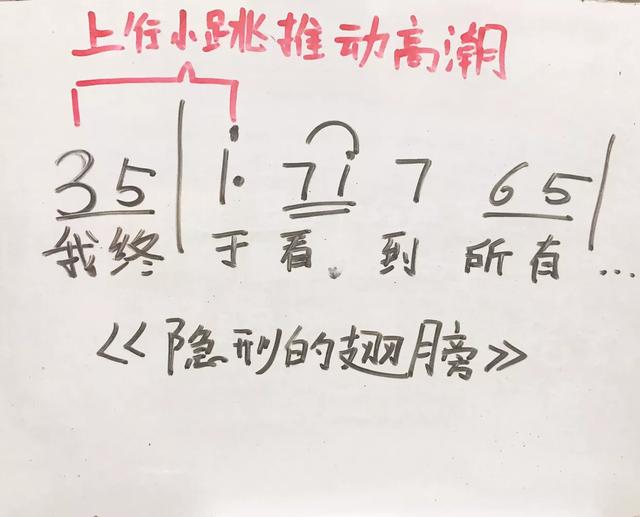 上行小跳推动高潮
35 | i· 7i 7 65 |
我终于看到所有...
《隐形的翅膀》